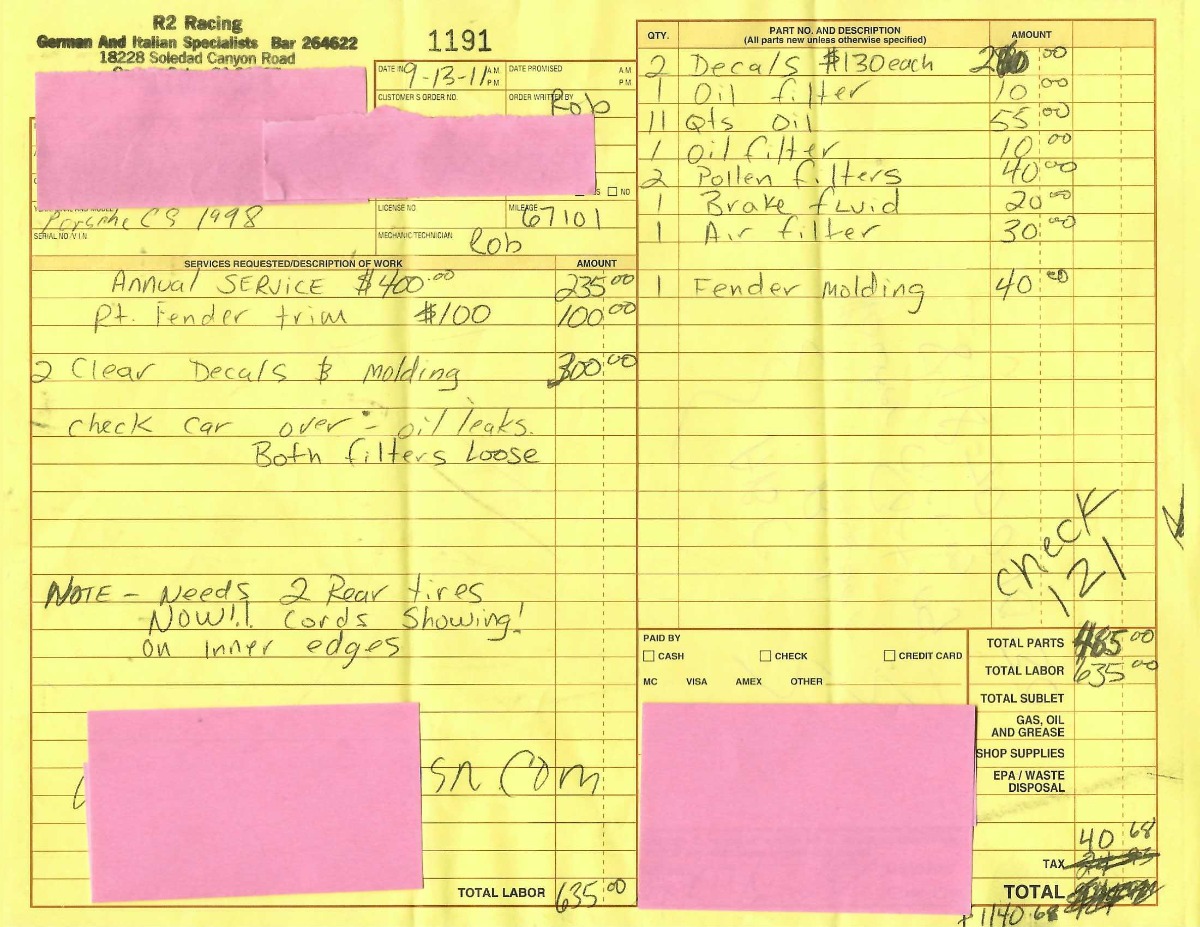 R2 Racing
German And Italian Specialists Bar 264622
18228 Soledad Canyon Road
1191
DATE IN 9-13-11 A.M. P.M.
DATE PROMISED A.M. P.M.
CUSTOMER'S ORDER NO.
ORDER WRITTEN BY Rob
NO
Porsche CS 1998
LICENSE NO.
MILEAGE 67101
SERIAL NO./V.I.N.
MECHANIC/TECHNICIAN Rob
SERVICES REQUESTED/DESCRIPTION OF WORK AMOUNT
Annual SERVICE $400.00 235 00
Rt. Fender trim $100 100 00
2 Clear Decals & Molding 300 00
check car over - oil leaks.
Both filters Loose
NOTE - Needs 2 Rear tires
NOW!! Cords Showing!
on inner edges
sn Com
TOTAL LABOR 635 00
QTY. PART NO. AND DESCRIPTION AMOUNT
(All parts new unless otherwise specified)
2 Decals $130 each 00
1 Oil filter 10 00
11 Qts Oil 55 00
1 Oil filter 10 00
2 Pollen filters 40 00
1 Brake fluid 20 00
1 Air filter 30 00
1 Fender Molding 40 00
check
121
PAID BY
CASH CHECK CREDIT CARD
MC VISA AMEX OTHER
TOTAL PARTS 485 00
TOTAL LABOR 635 00
TOTAL SUBLET
GAS, OIL
AND GREASE
SHOP SUPPLIES
EPA / WASTE
DISPOSAL
40 68
TAX
TOTAL
1140.68